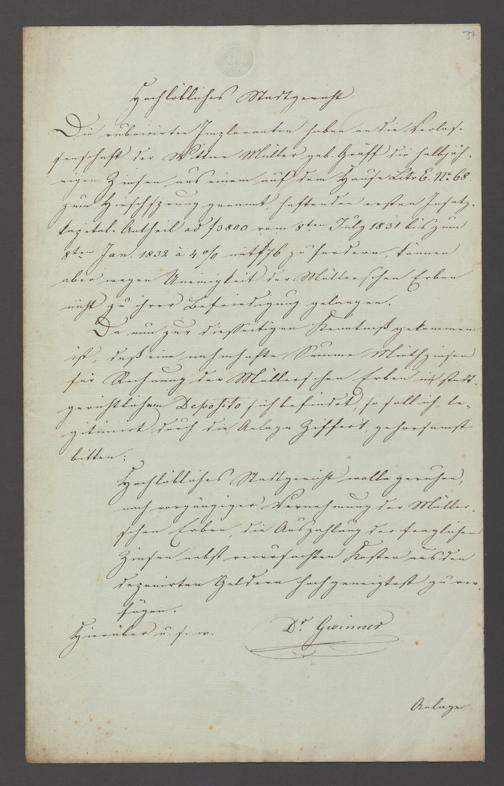 34
Hochlöbliches Stadtgericht
Die rubricirten Imploranten haben an die Verlas-
senschaft der Wittwe Müller geb. Gräff die halbjäh-
rigen Zinsen aus einem auf dem Hause Litr. E. No. 68
zum Hirschsprung genannt haftenden ersten Insatz-
kapital-Antheil ad f 3800 vom 8ten July 1831 bis zum
8ten Jan. 1832 à 4 % mit f 76 zu fordern, können
aber wegen Uneinigkeit der Müllerschen Erben
nicht zu ihrer Befriedigung gelangen.
Da nun zur diesseitigen Kenntniß gekommen
ist, daß eine nahmhafte Summe Miethzinsen
für Rechnung der Müllerschen Erben in stadt-
gerichtlichem Deposito sich befindet, so soll ich, le-
gitimirt durch die Anlage Ziffer 1, gehorsamst
bitten:
Hochlöbliches Stadtgericht wolle geruhen,
nach vorgängiger Vernehmung der Müller-
schen Erben, die Auszahlung der fraglichen
Zinsen nebst verursachten Kosten aus den
deponirten Geldern hochgeneigtest zu ver-
fügen.
Hierüber u. s. w.
Dr. Gwinner
Anlage